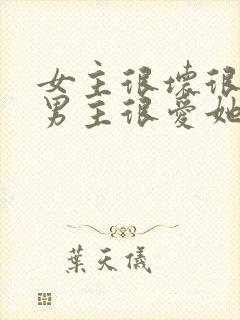 女主很壞很
男主很愛她
葉天儀